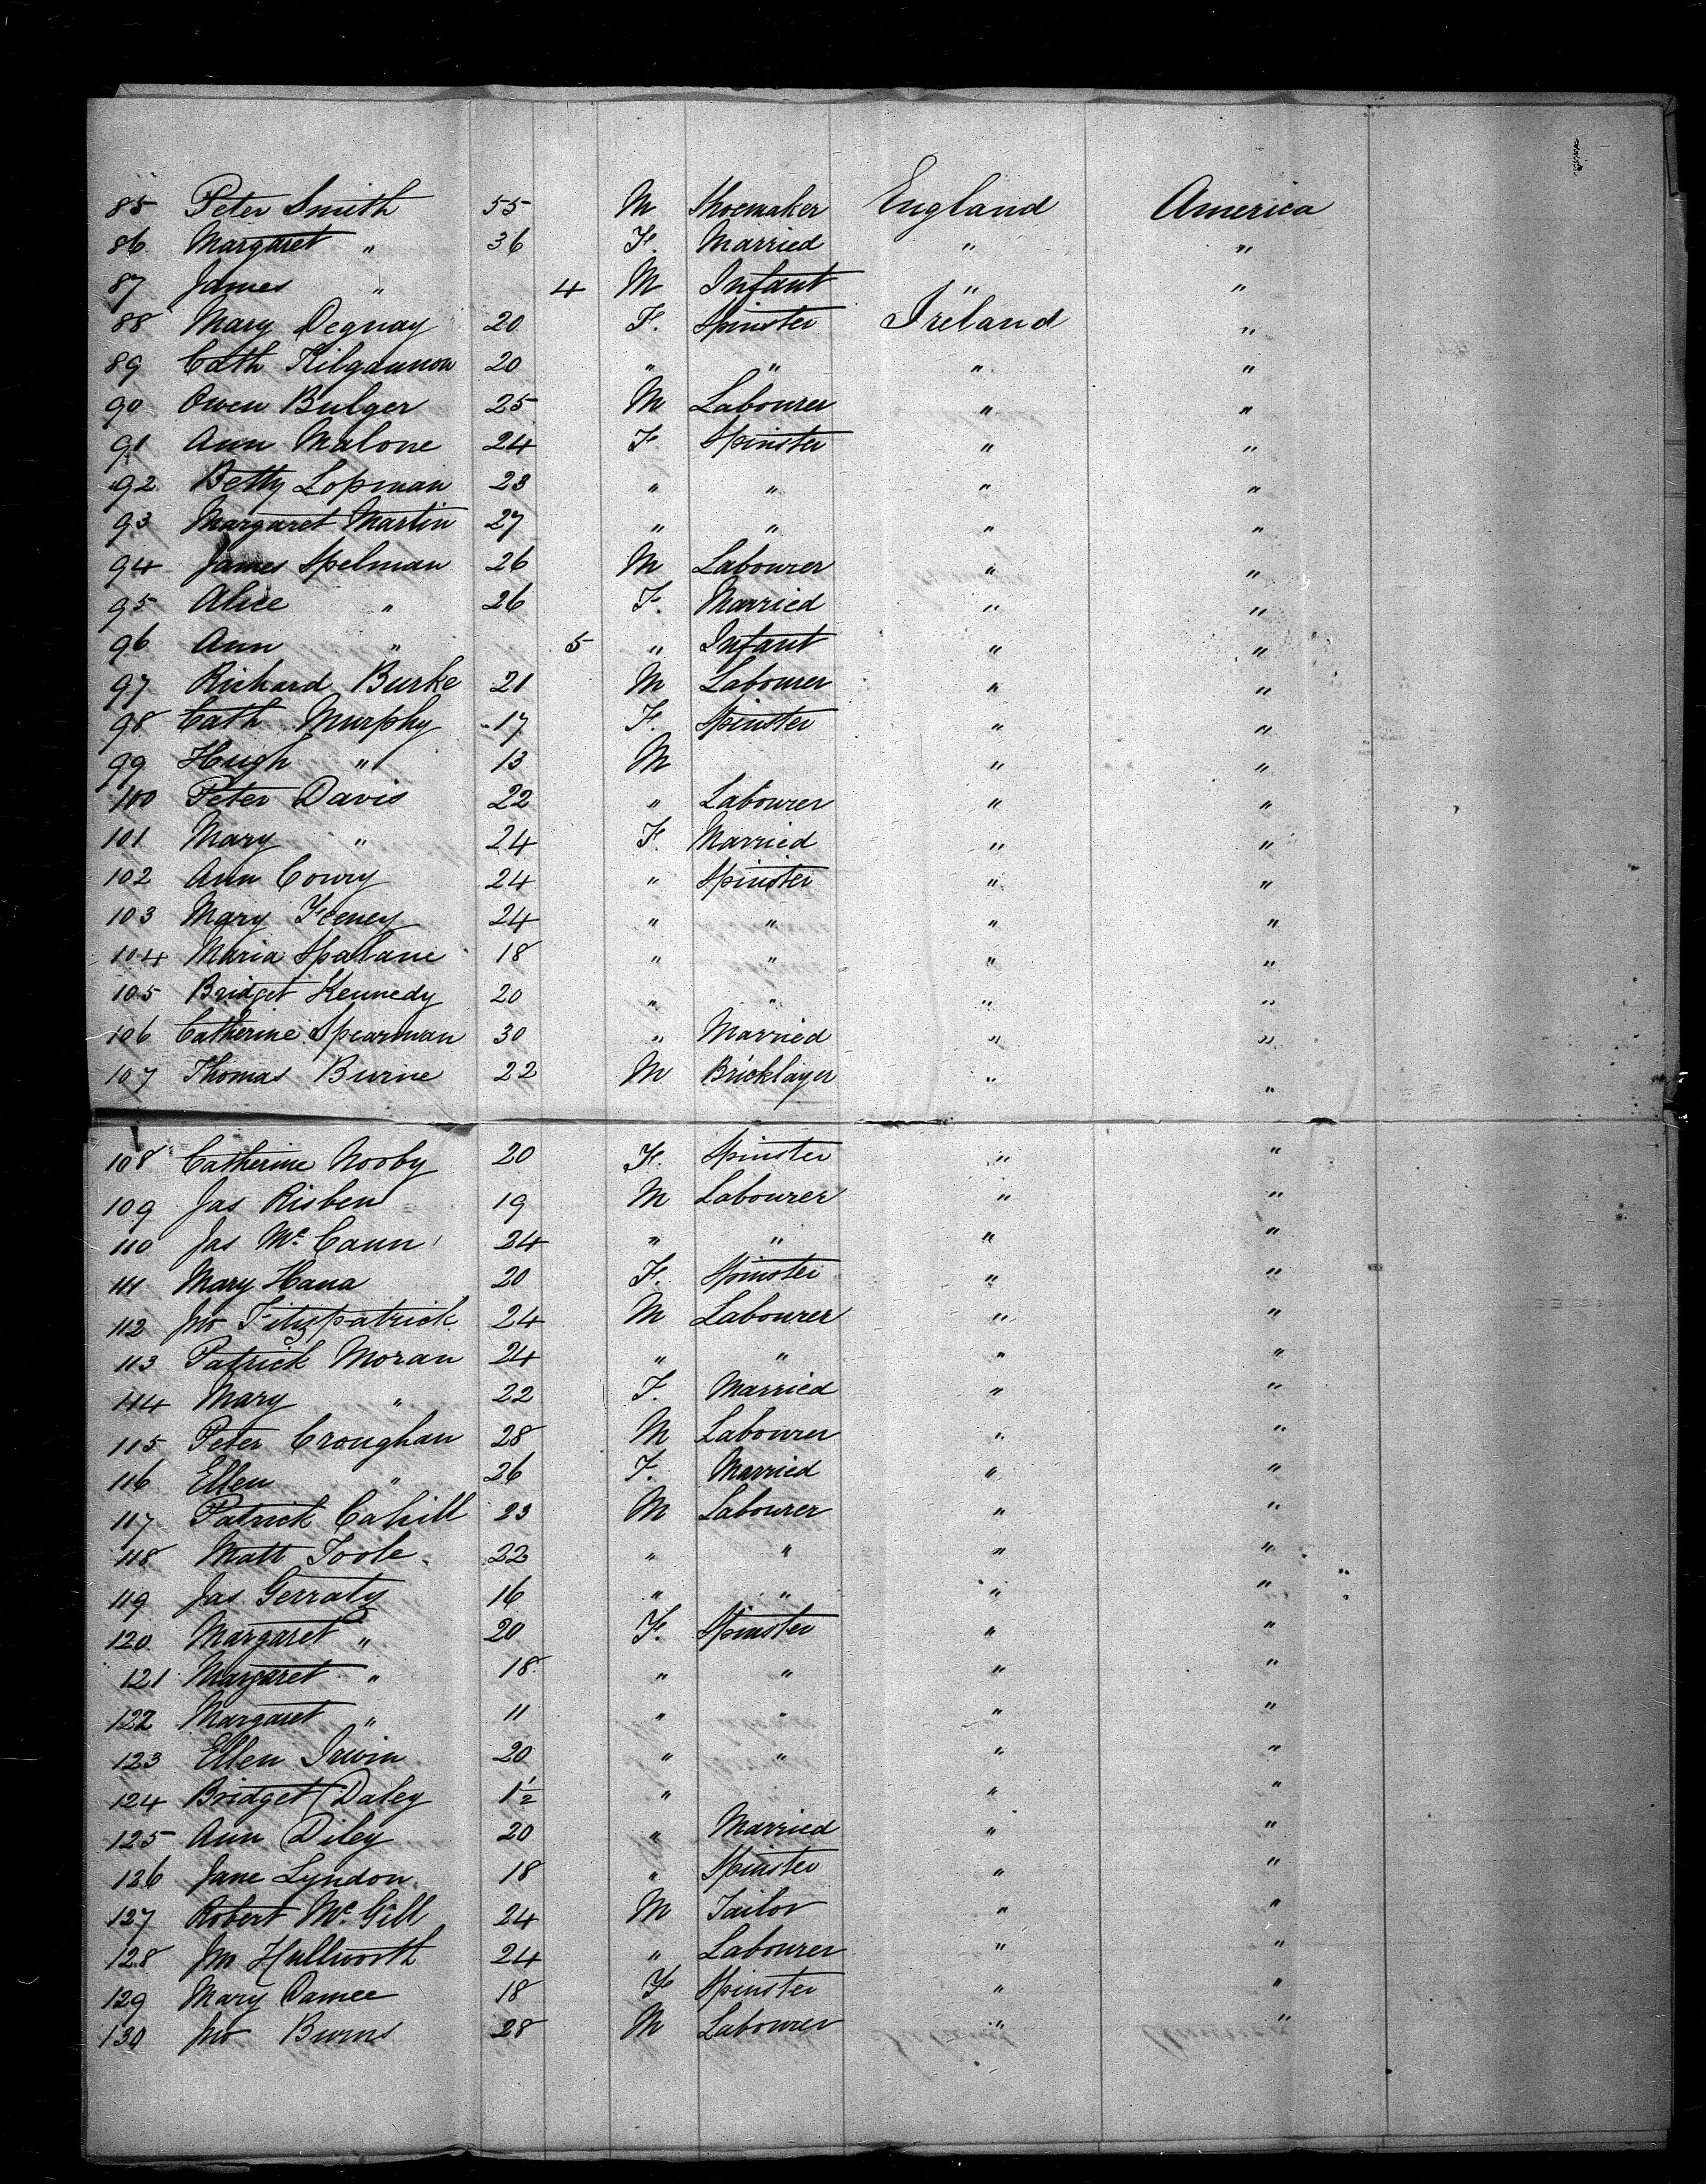 85 Peter Smith 55 M Shoemaker England America
86 Margaret " 36 F. Married " "
87 James " 4 M Infant " "
88 Mary Degnay 20 F. Spinster Ireland "
89 Cath Kilgannon 20 " " " "
90 Owen Bulger 25 M Labourer " "
91 Ann Malone 24 F Spinster " "
92 Betty Lopman 23 " " " "
93 Margaret Martin 27 " " " "
94 James Spelman 26 M Labourer " "
95 Alice " 26 F. Married " "
96 Ann " 5 " Infant " "
97 Richard Burke 21 M Labourer " "
98 Cath Murphy 17 F. Spinster " "
99 Hugh " 13 M " "
100 Peter Davis 22 " Labourer " "
101 Mary " 24 F. Married " "
102 Ann Cowry 24 " Spinster " "
103 Mary Feeney 24 " " " "
104 Maria Spalane 18 " " " "
105 Bridget Kennedy 20 " " " "
106 Catherine Spearman 30 " Married " "
107 Thomas Burne 22 M Bricklayer " "
108 Catherine Nooby 20 F. Spinster " "
109 Jas Risben 19 M Labourer " "
110 Jas Mc Cann 24 " " " "
111 Mary Hana 20 F. Spinster " "
112 Jno Fitzpatrick 24 M Labourer " "
113 Patrick Moran 24 " " " "
114 Mary " 22 F. Married " "
115 Peter Croughan 28 M Labourer " "
116 Ellen " 26 F. Married " "
117 Patrick Cahill 23 M Labourer " "
118 Matt Toole 22 " " " "
119 Jas Gerraty 16 " " " "
120 Margaret " 20 F. Spinster " "
121 Margaret " 18 " " " "
122 Margaret " 11 " " " "
123 Ellen Irwin 20 " " " "
124 Bridget Daley 1½ " " "
125 Ann Diley 20 " Married " "
126 Jane Lyndon 18 " Spinster " "
127 Robert Mc Gill 24 M Tailor " "
128 Jno Hullworth 24 " Labourer " "
129 Mary Damee 18 F Spinster " "
130 Jno Burns 28 M Labourer " "